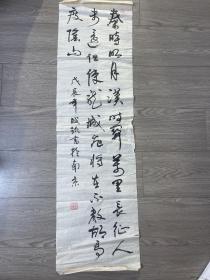 秦時明月漢時關萬里長征人
未還但使龍城飛將在不教胡馬
度陰山 戊辰年 書於南京